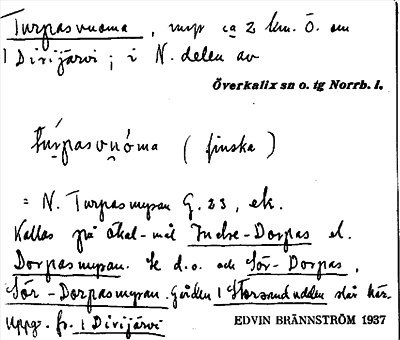 Turpasvuoma, myr ca 2 km. Ö. om
1 Dirijärvi; i N. delen av
Överkalix sn o. tg Norrb. l.
túrpasvuóma (finska)
= N. Turpasmyran G. 23, ek.
Kallas på ökal-mål Indre-Dorpas el.
Dorpasmyran. Se d.o. och Sör-Dorpas,
Sör-Dorpasmyran. Gården 1 Storsandudden slår här.
Uppg. fr. 1 Dirijärvi
EDVIN BRÄNNSTRÖM 1937